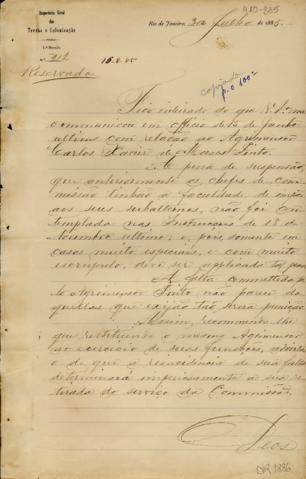 Inspectoria Geral
das
Terras e Colonização
1ª Secção
Nº 217
Reservado
Rio de Janeiro, 30 Julho de 1885
910-885
15.8.85
copiado
Fico inteirado do que V. S.ª me
communicou em officio de de Junho
ultimo com relação ao Agrimensor
Carlos Xavier de Moraes Pinto.
A pena de suspensão,
que anteriormente os chefes de com
missão tinhão a faculdade de impôr
aos seus subalternos, não foi con
templada nas Instrucções de 18 de
Novembro ultimo; e, pois, somente em
casos muito especiaes, e com muito
escrupulo, deve ser applicada
A falta commettida pe
lo Agrimensor Pinto não parece da
quellas que exijão tão severa punição.
Assim, recommendo-lhe
que restituindo o mesmo Agrimensor
ao exercicio de suas funcções,
o de que a reincidencia de sua falta
determinará imperiosamente a sua re
tirada do serviço da Commissão.
Deos
1886